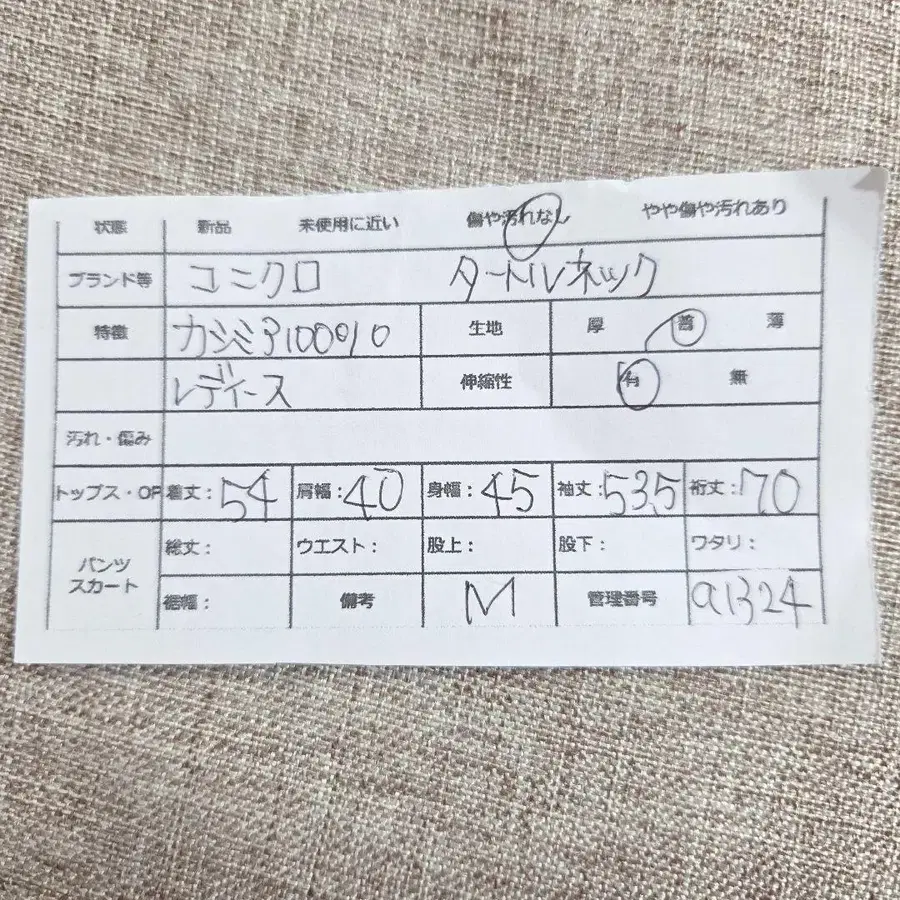 状態 新品 未使用に近い 傷や汚れなし やや傷や汚れあり
ブランド等 ユニクロ タートルネック
特徴 カシミア100% 生地 厚 普 薄
レディース 伸縮性 有 無
汚れ・傷み
トップス・OP 着丈:54 肩幅:40 身幅:45 袖丈:53.5 裄丈:70
パンツ スカート 総丈: ウエスト: 股上: 股下: ワタリ:
裾幅: 備考 M 管理番号 a1324